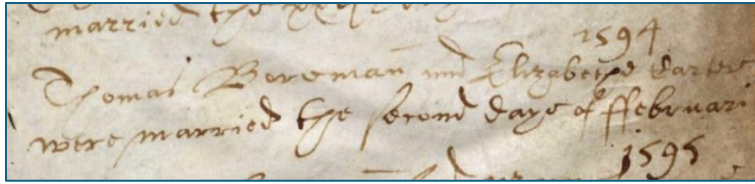 married the
1594
Thomas Boreman and Elizabethe Carter
were married the second daye of ffebruari
1595